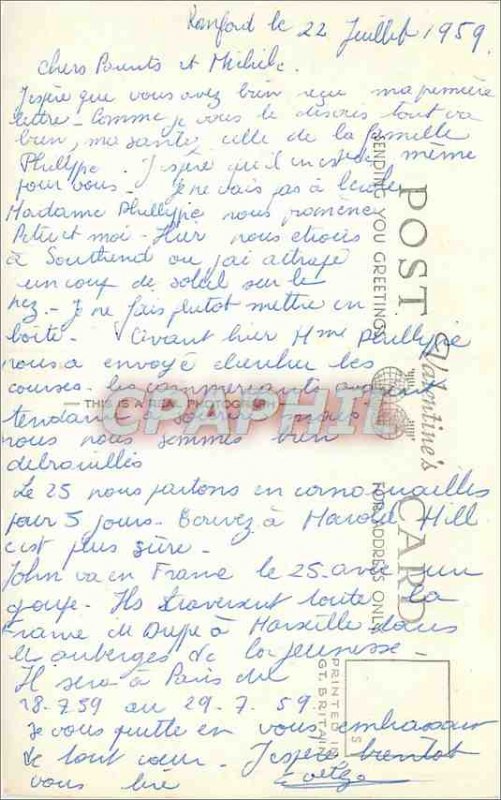 le 22 Juillet 1959.
chers Parents et Michel.
J'espère que vous avez bien reçu ma première
lettre - Comme je vous le disais tout va
bien, ma santé, celle de la famille
Phyllipe. J'espère qu'il en est de même
pour vous - Je ne vais pas à l'école
Madame Phyllipie nous promène
Peter et moi - Hier nous étions
à Southend ou j'ai attrapé
un coup de soleil sur le
nez - Je me fais plutot mettre en
boîte - Avant hier Mme Phyllipie
nous a envoyé chercher les
courses - les commerçants
nous nous sommes bien
debrouillés
Le 25 nous partons en cornouailles
pour 5 jours - Ecrivez à Harold Hill
c'est plus sûre -
John va en France le 25 avec un
groupe - Ils traversent toute la
France de Dieppe à Marseille dans
les auberges de la jeunesse -
Il sera à Paris du
28.7.59 au 29.7.59
je vous quitte en vous embrassant
de tout cœur - J'espère bientot
vous lire
POST CARD
SENDING YOU GREETINGS
Valentine's
THIS IS A REAL PHOTOGRAPH
FOR ADDRESS ONLY
PRINTED IN
GT. BRITAIN
CPAPHIL